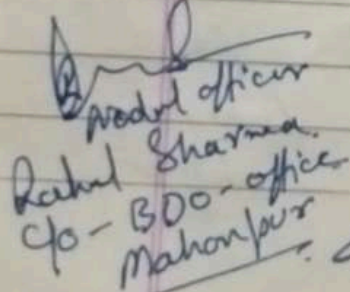 Nodal officer
Rahul Sharma.
C/o - BDO - office
Mahanpur